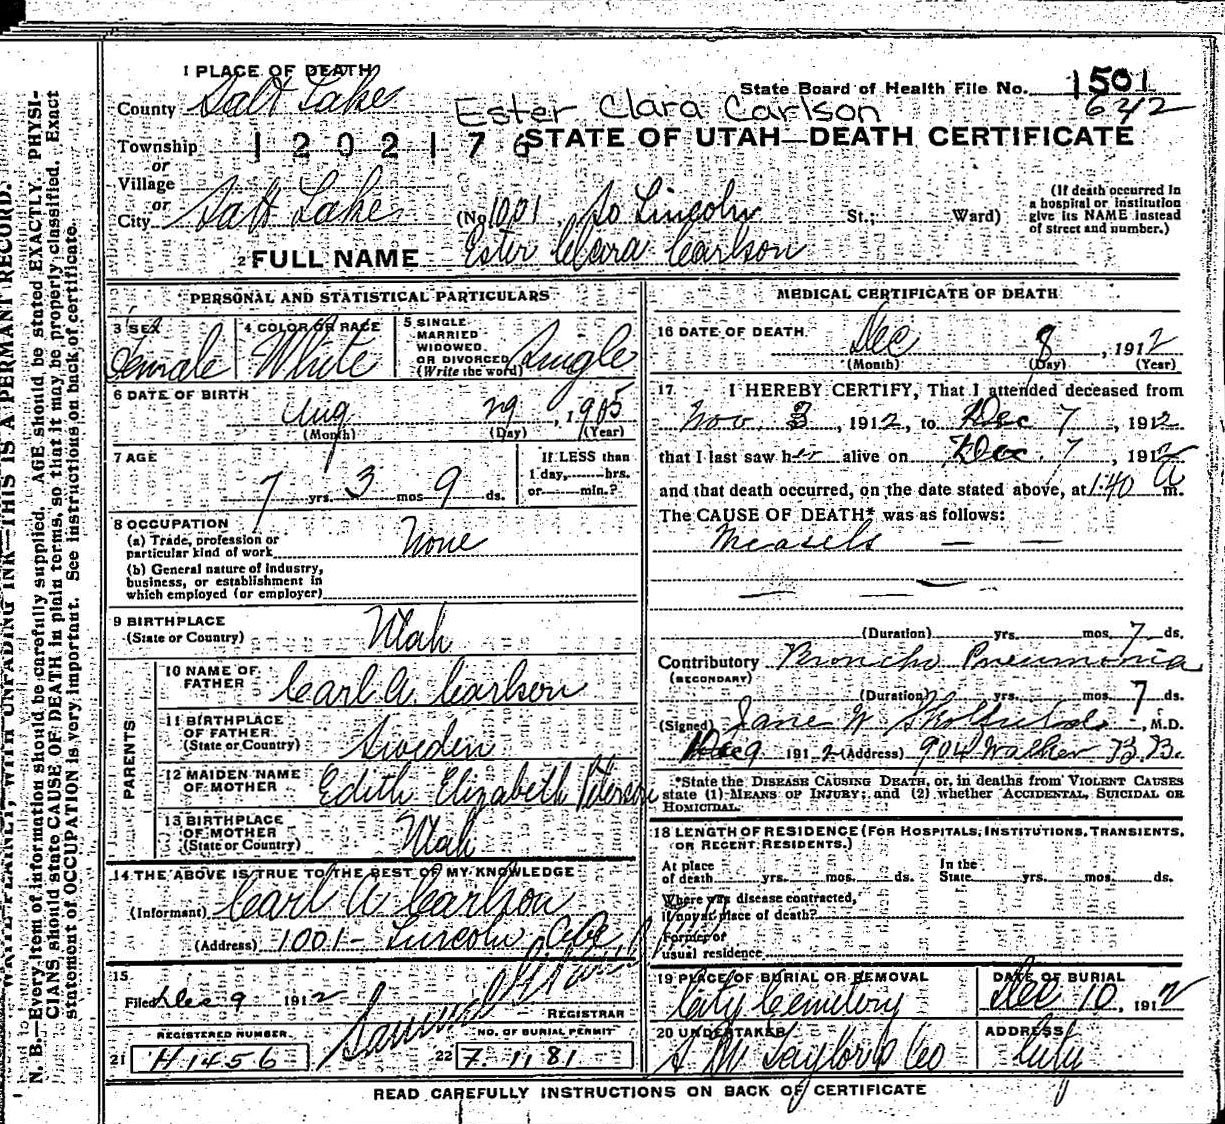 1 PLACE OF DEATH
State Board of Health File No. 1501
County Salt Lake
Ester Clara Carlson
642
Township 1202176
STATE OF UTAH—DEATH CERTIFICATE
or
Village
or
City Salt Lake (No 1001, So Lincoln St.; Ward)
(If death occurred in
a hospital or institution
give its NAME instead
of street and number.)
2 FULL NAME Ester Clara Carlson
PERSONAL AND STATISTICAL PARTICULARS
3 SEX Female
4 COLOR OR RACE White
5 SINGLE
MARRIED
WIDOWED
OR DIVORCED
(Write the word) Single
6 DATE OF BIRTH
Aug 29, 1905
(Month) (Day) (Year)
7 AGE
7 yrs. 3 mos 9 ds.
If LESS than
1 day, hrs.
or min.?
8 OCCUPATION
(a) Trade, profession or
particular kind of work None
(b) General nature of industry,
business, or establishment in
which employed (or employer)
9 BIRTHPLACE
(State or Country) Utah
PARENTS
10 NAME OF
FATHER Carl A. Carlson
11 BIRTHPLACE
OF FATHER
(State or Country) Sweden
12 MAIDEN NAME
OF MOTHER Edith Elizabeth
13 BIRTHPLACE
OF MOTHER
(State or Country) Utah
14 THE ABOVE IS TRUE TO THE BEST OF MY KNOWLEDGE
(Informant) Carl A Carlson
(Address) 1001 - Lincoln Ave
15
Filed Dec 9 1912
REGISTRAR
REGISTERED NUMBER
21 H1456
NO. OF BURIAL PERMIT
22 7.1181
MEDICAL CERTIFICATE OF DEATH
16 DATE OF DEATH
Dec 8, 1912
(Month) (Day) (Year)
17 I HEREBY CERTIFY, That I attended deceased from
Nov. 3, 1912, to Dec 7, 1912
that I last saw her alive on Dec. 7, 1912
and that death occurred, on the date stated above, at 1:40 A m.
The CAUSE OF DEATH* was as follows:
Measels — —
(Duration) yrs. mos. 7 ds.
Contributory Broncho Pneumonia
(SECONDARY)
(Duration) yrs. mos. 7 ds.
(Signed) Jane W. , M.D.
Dec 9 1912 (Address) 904 Walker B.B.
*State the DISEASE CAUSING DEATH, or, in deaths from VIOLENT CAUSES
state (1) MEANS OF INJURY; and (2) whether ACCIDENTAL, SUICIDAL OR
HOMICIDAL.
18 LENGTH OF RESIDENCE (FOR HOSPITALS, INSTITUTIONS, TRANSIENTS,
OR RECENT RESIDENTS.)
At place
of death yrs. mos. ds.
In the
State yrs. mos. ds.
Where was disease contracted,
if not at place of death?
Former or
usual residence
19 PLACE OF BURIAL OR REMOVAL
City Cemetery
DATE OF BURIAL
Dec 10, 1912
20 UNDERTAKER
S M Taylor & Co
ADDRESS
City
READ CAREFULLY INSTRUCTIONS ON BACK OF CERTIFICATE
WRITE PLAINLY, WITH UNFADING INK—THIS IS A PERMANT RECORD.
N. B.—Every item of information should be carefully supplied. AGE should be stated EXACTLY. PHYSI-
CIANS should state CAUSE OF DEATH in plain terms, so that it may be properly classified. Exact
statement of OCCUPATION is very important. See instructions on back of certificate.